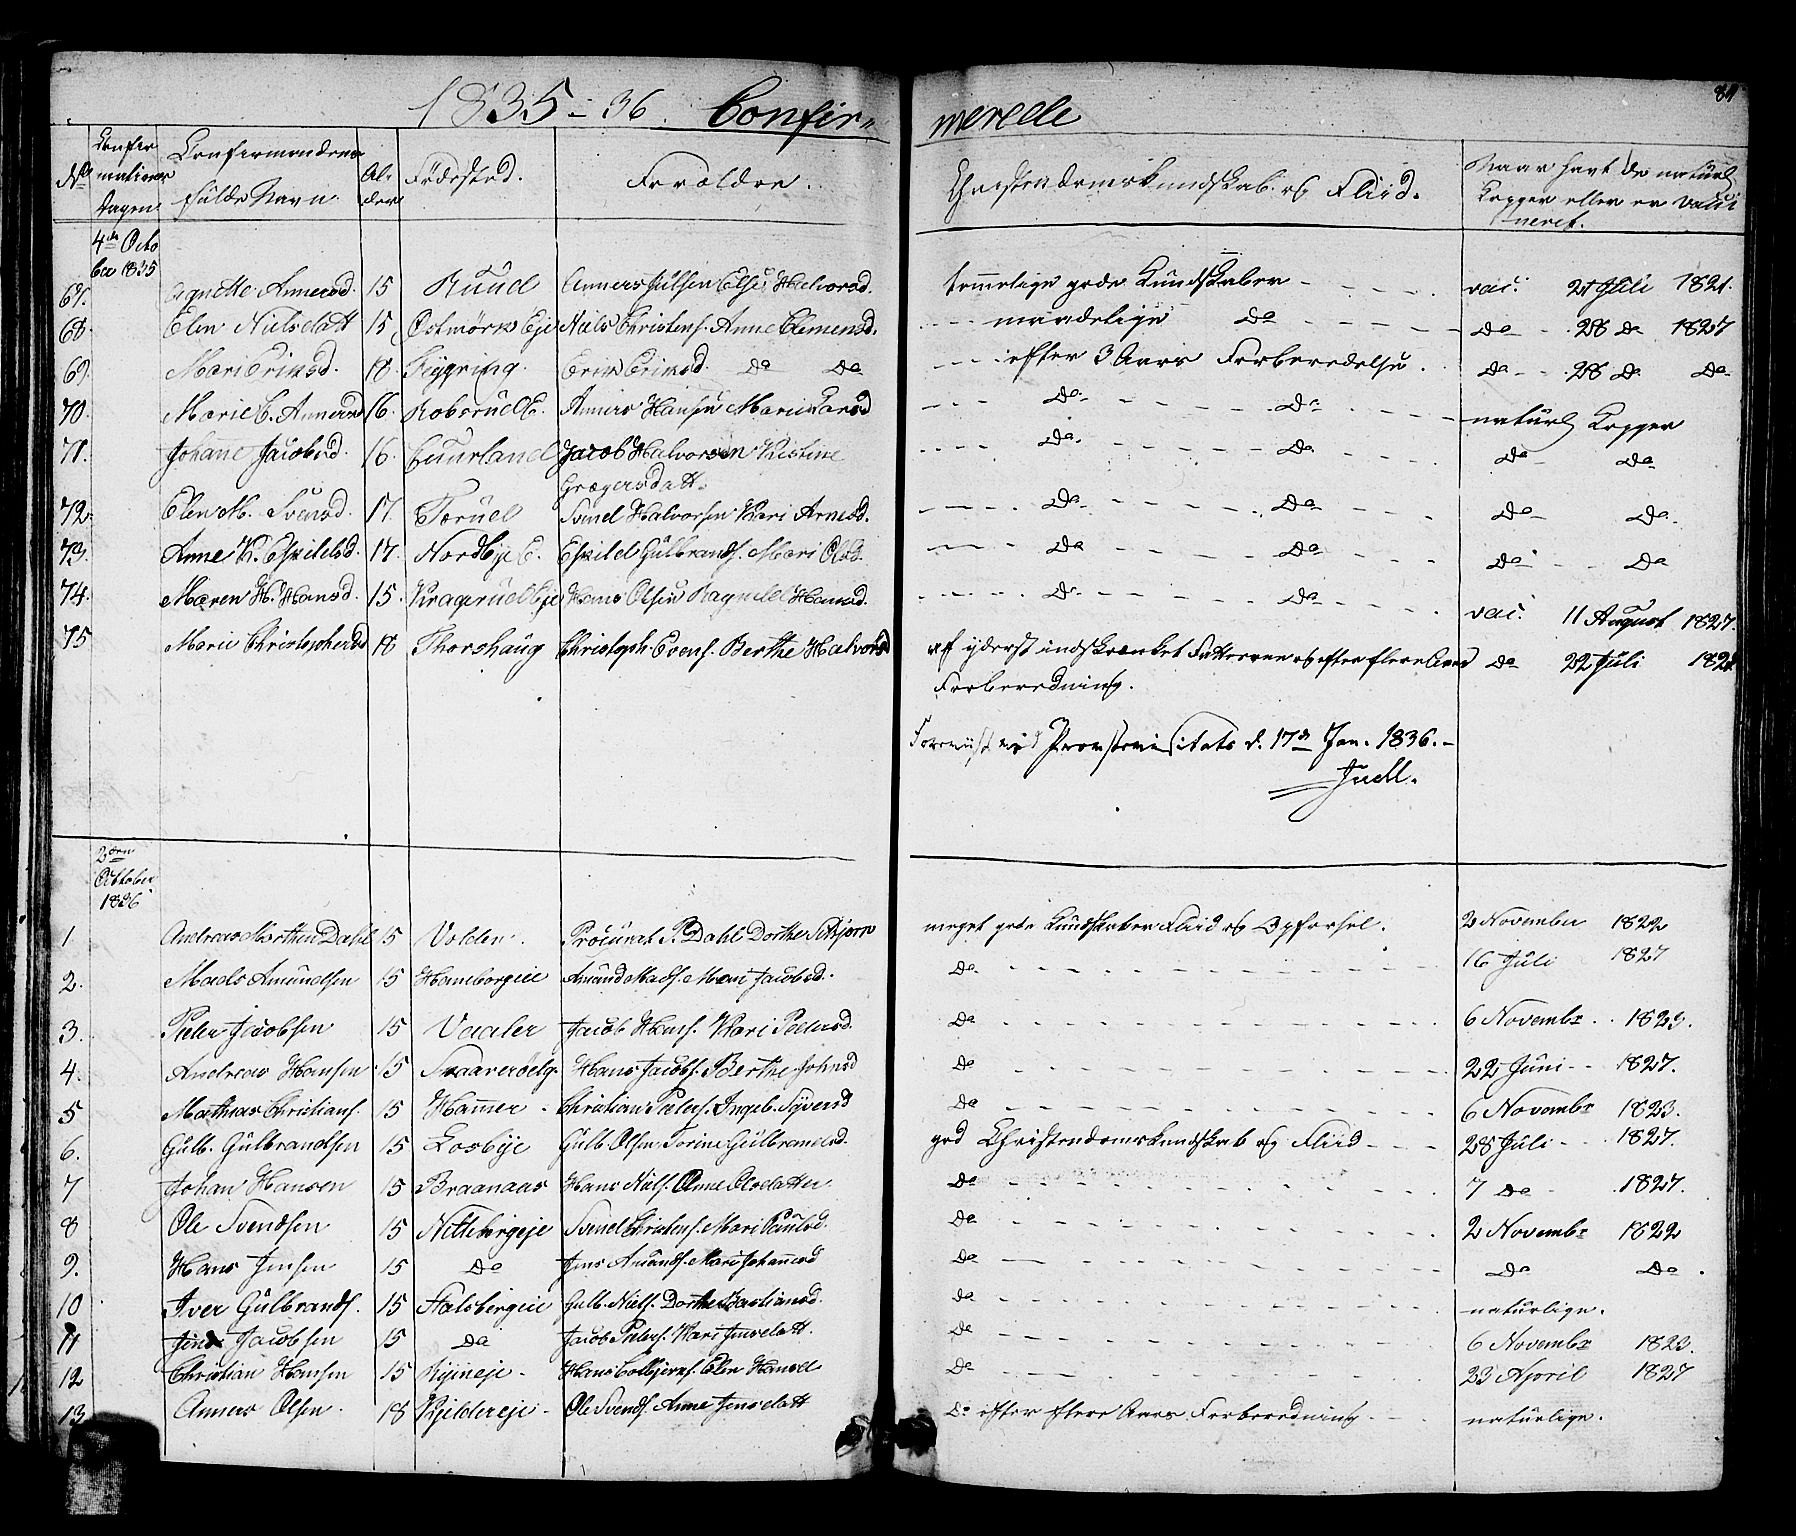 84
1835 - 36. Confir- merede
No Confirmations Dagen Confirmandens fulde Navn. Alder Fødested. Forældre. Christendomskundskab og Fliid. Naar havt de naturl Kopper eller er vaccineret.
4de October 1835
67. Agnette Annersd. 15 Ruud Anners Julsen Else Halvorsd. temmelige gode Kundskaber - - - - vac. 21 Juli 1821.
68. Elen Nielsdatt 15 Ostmörk Eje Niels Christens. Anne Clemensd. - - maadelige do - - - - do - 28 do 1827
69. Mari Eriksd. 18. Eriks Eriksd. do do - - efter 3 Aars Forberedelse. do - - 28 do do
70. Marie C. Annersd 16. Robsrud E. Anners Hansen Marie Larsd - - - do - - - - do - - - - naturl Kopper
71. Johane Jacobsd. 16. Cuurland Jacob Halvorsen Kistine
Grægersdatt. - - - do. - - - - do - - - do do
72. Elen M. Svensd. 17. Toruel Svend Halvorsen Kari Arnesd. - - - do - - - - do - - - do do.
73. Anne K. Eskildsd. 17. Nordbye E. Eskild Gulbrands. Mari Olsd. - - - do - - - - do - - - do do
74. Maren H. Hansd. 15. Kragerud Eje Hans Olsen Ragnild Hansd. - - - do - - - - do - - - vac. 11 August 1827.
75 Marie Christophersd 18 Thorshaug Christoph. Evens. Berthe Halvorsd af yderst indskrænket Fatteevne og efter flere Aars
Forberedning. do 22 Juli 182
Foreviist ved Provstevisitats d. 17de Jan. 1836. -
2den October 1836
1 Andreas Morthen Dahl 15 Volden. Procurat. P. Dahl Dorthe meget gode Kundskaber Fliid og Opførsel. 2 November 1822
2. Mads Amundsen 15 Hamborgeie Amund Mads. Mari Jacobsd. do - - - - 16 Juli 1827
3. Peder Jacobsen 15 Vaaler Jacob Hans. Kari Pedersd. do - - - - 6 Novembr. 1823.
4. Andreas Hansen 15 Skaarerödeg. Hans Jacobs. Berthe Johnsd do - - - - 22 Juni - - 1827.
5 Mathias Christians. 15 Hamer - Christian Peders. Ingeb. Syversd do - - - - 6 Novembr 1823.
6. Gulb. Gulbrandsen 15 Losbye Gulb. Olsen Torine Gulbrandsd. god Christendomskundskab og Fliid - - - 28 Juli - 1827.
7 Johan Hansen 15 Braanaas Hans Niels. Anne Olsdatter do - - - - 7 do - 1827.
8 Ole Svendsen 15 Nittebergeje Svend Christens. Mari Paulsd. do - - - - 2 Novembr 1822
9. Hans Jensen 15 do Jens Amunds. Mari Johannsd do - - - - do do.
10 Iver Gulbrands. 15 Stalsbergeie Gulb. Niels. Dorthe Bastiansd. do - - - - naturlige.
11 Jens Jacobsen 15 do Jacob Peders. Kari Jensdatt. do - - - - 6 Novembr 1823.
12 Christian Hansen 15 Ryineje - Hans Colbjorns. Elen Hansd do - - - - 23 April 1827
13 Anners Olsen - 18 Kjeldereje - Ole Svends. Anne Jensdatt do efter flere Aars Forberedning - - naturlige.